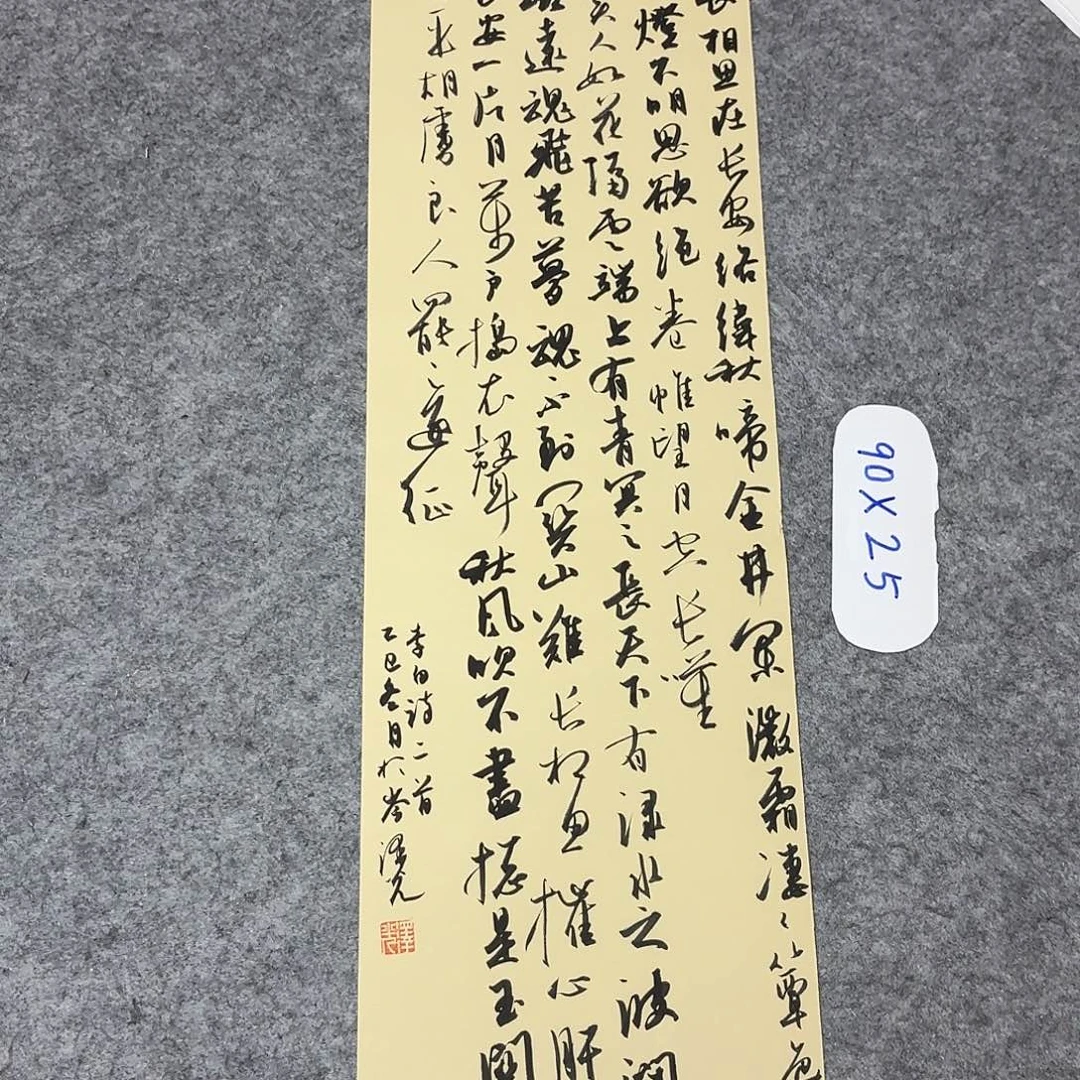 長相思在长安络緯秋啼金井闌微霜凄〻簟色
燈不明思欲絕卷帷望月空长嘆
美人如花隔雲端上有青冥之長天下有渌水之波瀾
路遠魂飛苦夢魂不到關山難长相思摧心肝
长安一片月萬户搗衣聲秋風吹不盡總是玉關
平胡虜良人罷遠征
李白詩二首
乙巳冬月於
90X25